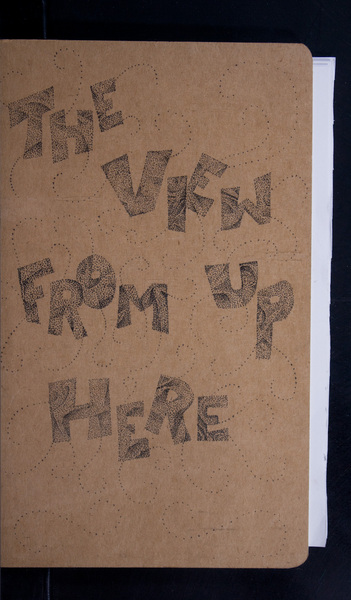 THE
VIEW
FROM UP
HERE